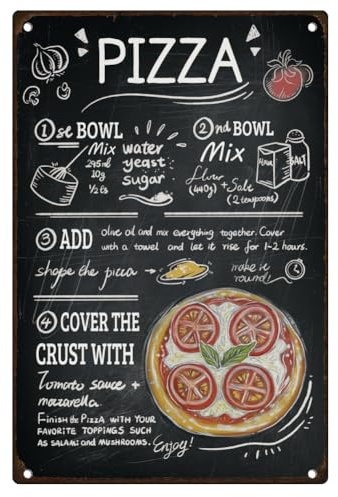 PIZZA
① st BOWL
Mix water
295ml
yeast
10g
sugar
½ ts
② nd BOWL
Mix
FLOUR SALT
flour + Salt
(440g) (2 teaspoons)
③ ADD olive oil and mix everything together. Cover
with a towel and let it rise for 1-2 hours.
shape the pizza → make it
round!
④ COVER THE
CRUST WITH
Tomato sauce +
mozzarella.
FINISH the PIZZA WITH YOUR
FAVORITE TOPPINGS SUCH
AS SALAMI AND MUSHROOMS.
Enjoy!